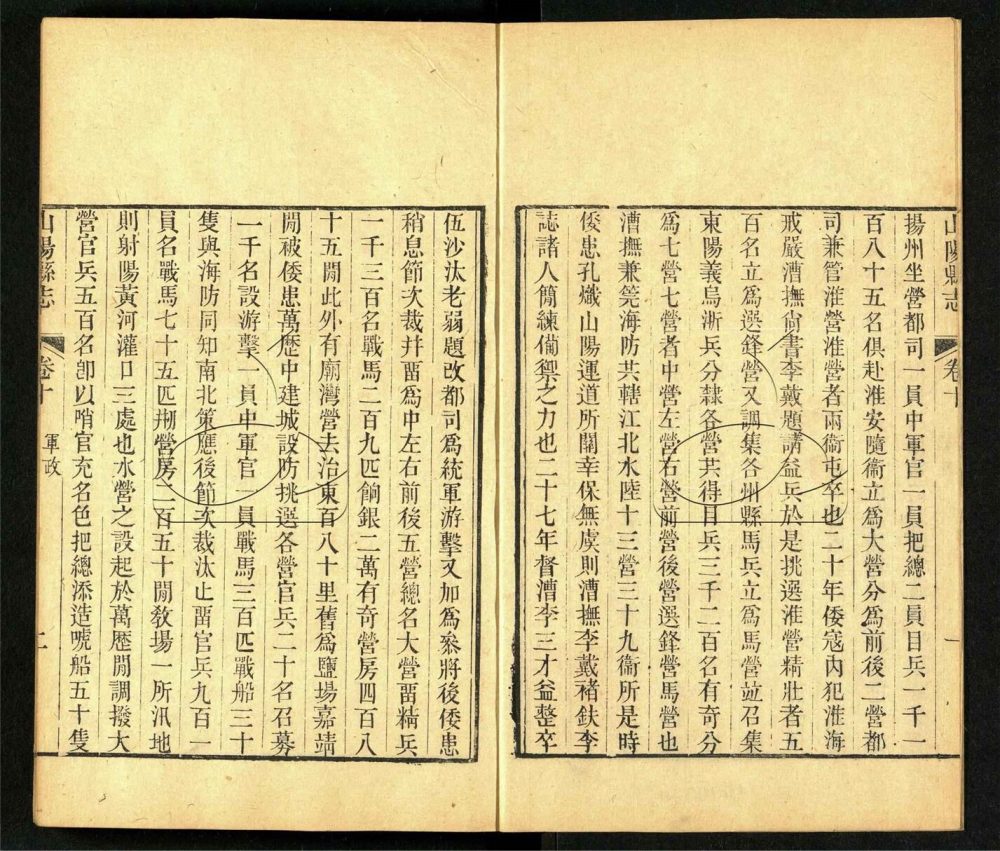 山陽縣志 卷十 一
揚州坐營都司一員中軍官一員把總二員目兵一千一
百八十五名俱赴淮安隨衞立爲大營分爲前後二營都
司兼管淮營淮營者兩衞屯卒也二十年倭寇內犯淮海
戒嚴漕撫尙書李戴題請益兵於是挑選淮營精壯者五
百名立爲選鋒營又調集各州縣馬兵立爲馬營竝召集
東陽義烏浙兵分隸各營共得目兵三千二百名有奇分
爲七營七營者中營左營右營前營後營選鋒營馬營也
漕撫兼筦海防共轄江北水陸十三營三十九衞所是時
倭患孔熾山陽運道所關幸保無虞則漕撫李戴褚鈇李
誌諸人簡練備禦之力也二十七年督漕李三才益整卒
伍沙汰老弱題改都司爲統軍游擊又加爲叅將後倭患
稍息節次裁幷畱爲中左右前後五營總名大營畱精兵
一千三百名戰馬二百九匹餉銀二萬有奇營房四百八
十五閒此外有廟灣營去治東百八十里舊爲鹽場嘉靖
閒被倭患萬歷中建城設防挑選各營官兵二十名召募
一千名設游擊一員中軍官一員戰馬三百匹戰船三十
隻與海防同知南北策應後節次裁汰止畱官兵九百一
員名戰馬七十五匹剏營房二百五十閒敎場一所汛地
則射陽黃河灌口三處也水營之設起於萬歷閒調撥大
營官兵五百名卽以哨官充名色把總添造唬船五十隻
山陽縣志 卷十 軍政 二